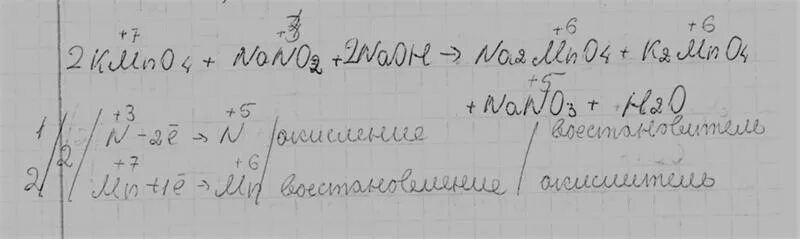 +7 +3 +6 +6
2KMnO4 + NaNO2 + 2NaOH → Na2MnO4 + K2MnO4
+5
+ NaNO3 + H2O
1 / 2 / +3 N - 2ē → +5 N / окисление / восстановитель
2 / / +7 Mn + 1ē → +6 Mn / восстановление / окислитель